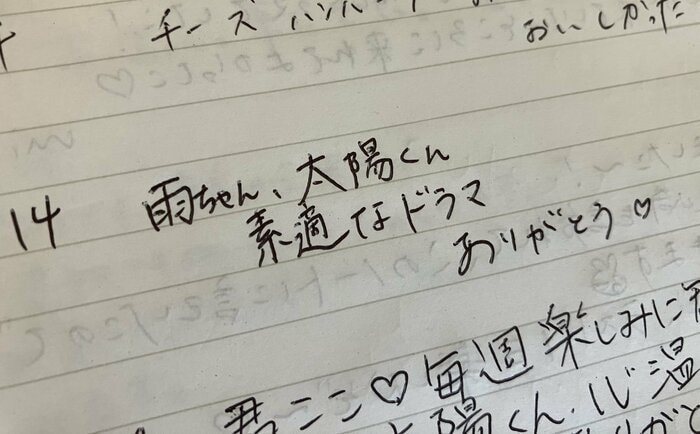 チーズ ハンバー
おいしかった
14 雨ちゃん、太陽くん
素適なドラマ
ありがとう♡
君ここ♡毎週楽しみに
陽くん、心温